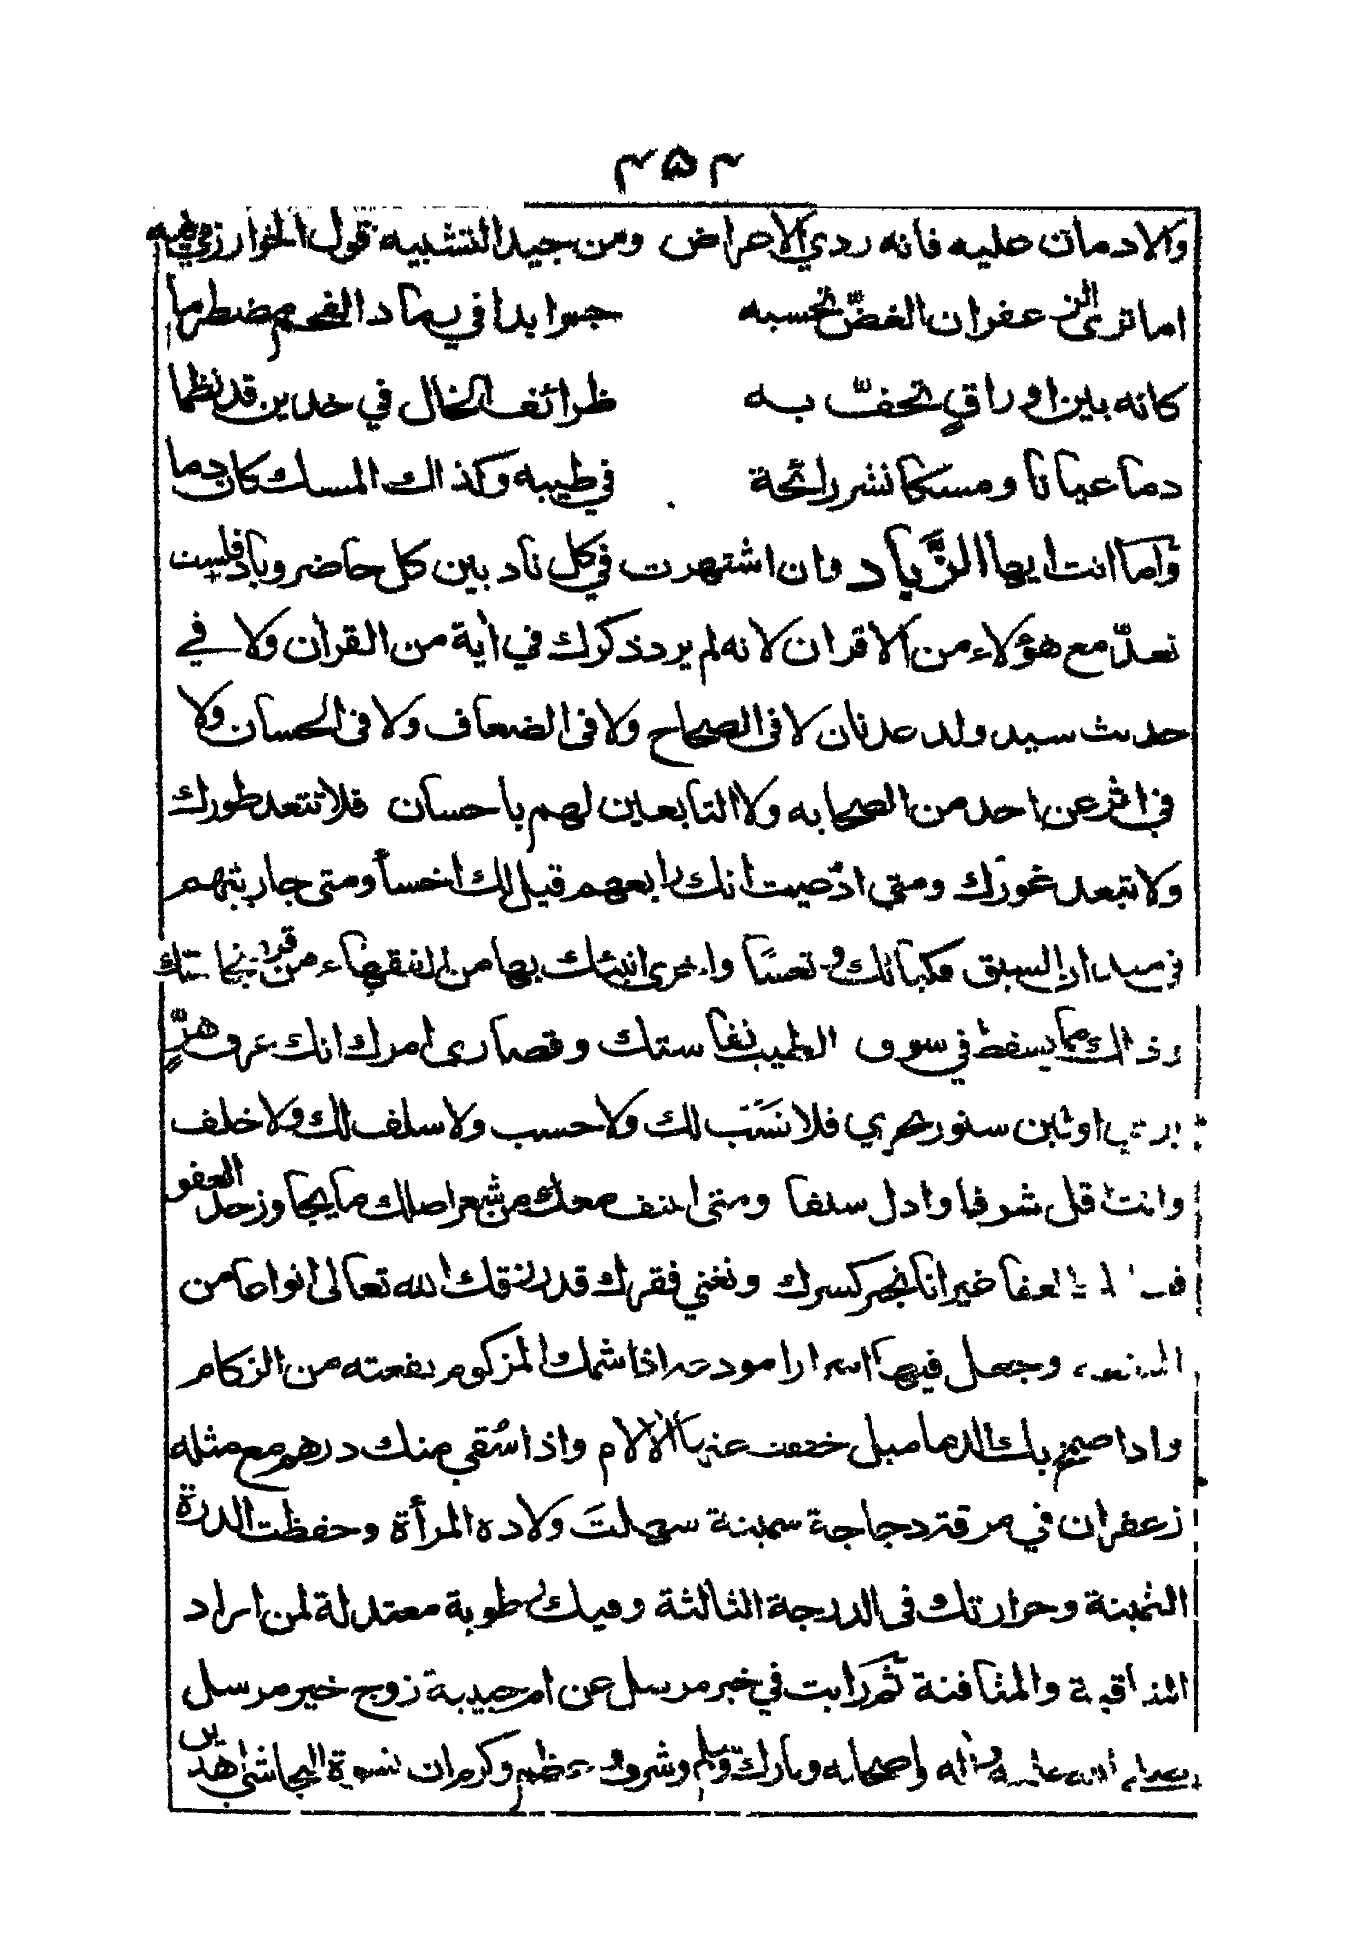 ٢٥٢
والادمان عليه فانه ردي الاعراض ومن جيد التشبيه قول الخوارزمي فيه
اما ترى الزعفران الغضّ تحسبه جمرا بدا في رماد الفحم مضطرما
كانه بين اوراق تحفّ به ظرائف الخال في خدين قد نظما
دما عيانا ومسكا نشر رائحة في طيبه وكذاك المسك كان دما
واما انت ايها الزَّباد وان اشتهرت في كل ناد بين كل حاضر وباد فلست
تعدّ مع هؤلاء من الاقران لانه لم يرد ذكرك في اية من القران ولا في
حديث سيد ولد عدنان لا فى الصحاح ولا فى الضعاف ولا فى الحسان ولا
في اثر عن احد من الصحابه ولا التابعين لهم باحسان فلا تتعد طورك
ولا تبعد غورك ومتى ادّعيت انك رابعهم قيل لك اخسأ ومتى جاريتهم
في ميدان السبق فكبا لك وتعسًا واخرى انبئك بها من الفقهاء من قرا نجاستك
وذلك مما يسقط في سوق الطيب نفاستك وقصارى امرك انك عرق هرٍّ
برى او لبن سنور بحري فلا نسَب لك ولا حسب ولا سلف لك ولا خلف
وانت اقل شرفا واذل سلفا ومتى من شعر اصلك ما يجاوز حد العفو
العفا غير انا نجبر كسرك ونغني فقرك قد رزقك الله تعالى انواعا من
وجعل فيها اسرارا مودعه اذا شمك المزكوم نفعته من الزكام
واذا بك الدماميل خففت عنها الالام واذا سُقي منك درهم مع مثله
زعفران في مرقة دجاجة سمينة سهلتَ ولاده المرأة وحفظت الدرة
الثمينة وحرارتك فى الدرجة الثالثة وفيك رطوبة معتدلة لمن اراد
والمثافنة ثم رايت في خبر مرسل عن ام حبيبة زوج خير مرسل
صلى الله عليه واله واصحابه وبارك وسلم وشرف وعظم وكرم ان نسوة النجاشي اهدين